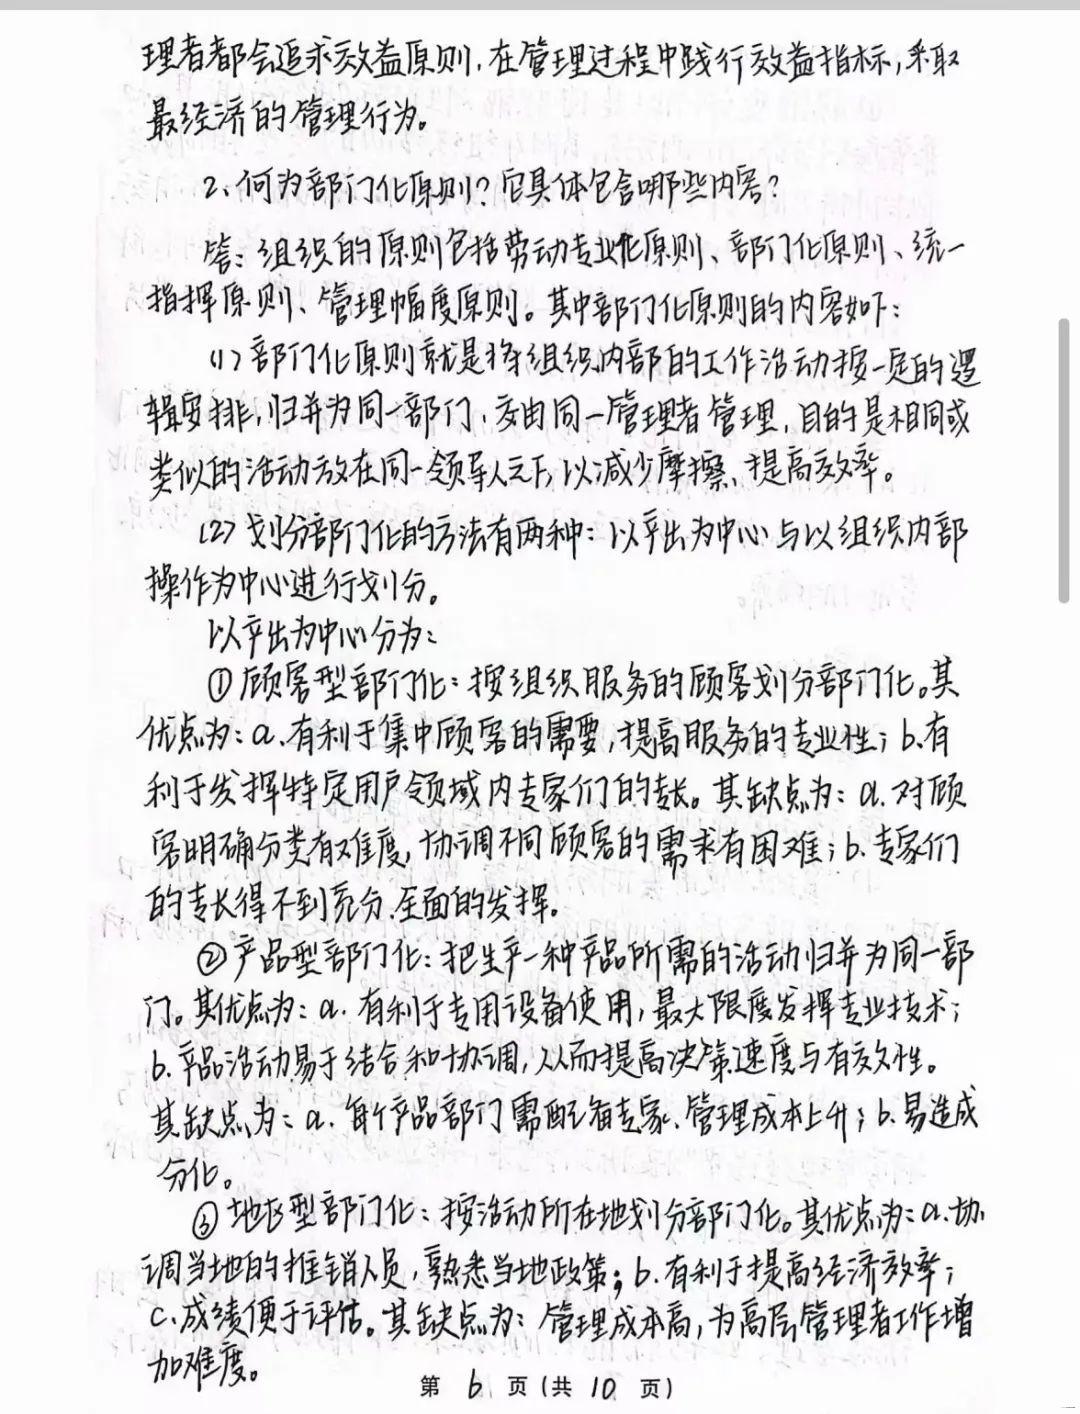 理者都会追求效益原则,在管理过程中践行效益指标,采取
最经济的管理行为。
2、何为部门化原则?它具体包含哪些内容?
答:组织的原则包括劳动专业化原则、部门化原则、统一
指挥原则、管理幅度原则。其中部门化原则的内容如下:
(1)部门化原则就是将组织内部的工作活动按一定的逻
辑安排,归并为同一部门,交由同一管理者管理,目的是相同或
类似的活动放在同一领导人之下,以减少摩擦、提高效率。
(2)划分部门化的方法有两种:以产出为中心与以组织内部
操作为中心进行划分。
以产出为中心分为:
①顾客型部门化:按组织服务的顾客划分部门化。其
优点为:a.有利于集中顾客的需要,提高服务的专业性;b.有
利于发挥特定用户领域内专家们的专长。其缺点为:a.对顾
客明确分类有难度,协调不同顾客的需求有困难;b.专家们
的专长得不到充分、全面的发挥。
②产品型部门化:把生产一种产品所需的活动归并为同一部
门。其优点为:a.有利于专用设备使用,最大限度发挥专业技术;
b.产品活动易于结合和协调,从而提高决策速度与有效性。
其缺点为:a.每个产品部门需配备专家、管理成本上升;b.易造成
分化。
③地区型部门化:按活动所在地划分部门化。其优点为:a.协
调当地的推销人员,熟悉当地政策;b.有利于提高经济效率;
c.成绩便于评估。其缺点为:管理成本高,为高层管理者工作增
加难度。
第 6 页(共 10 页)